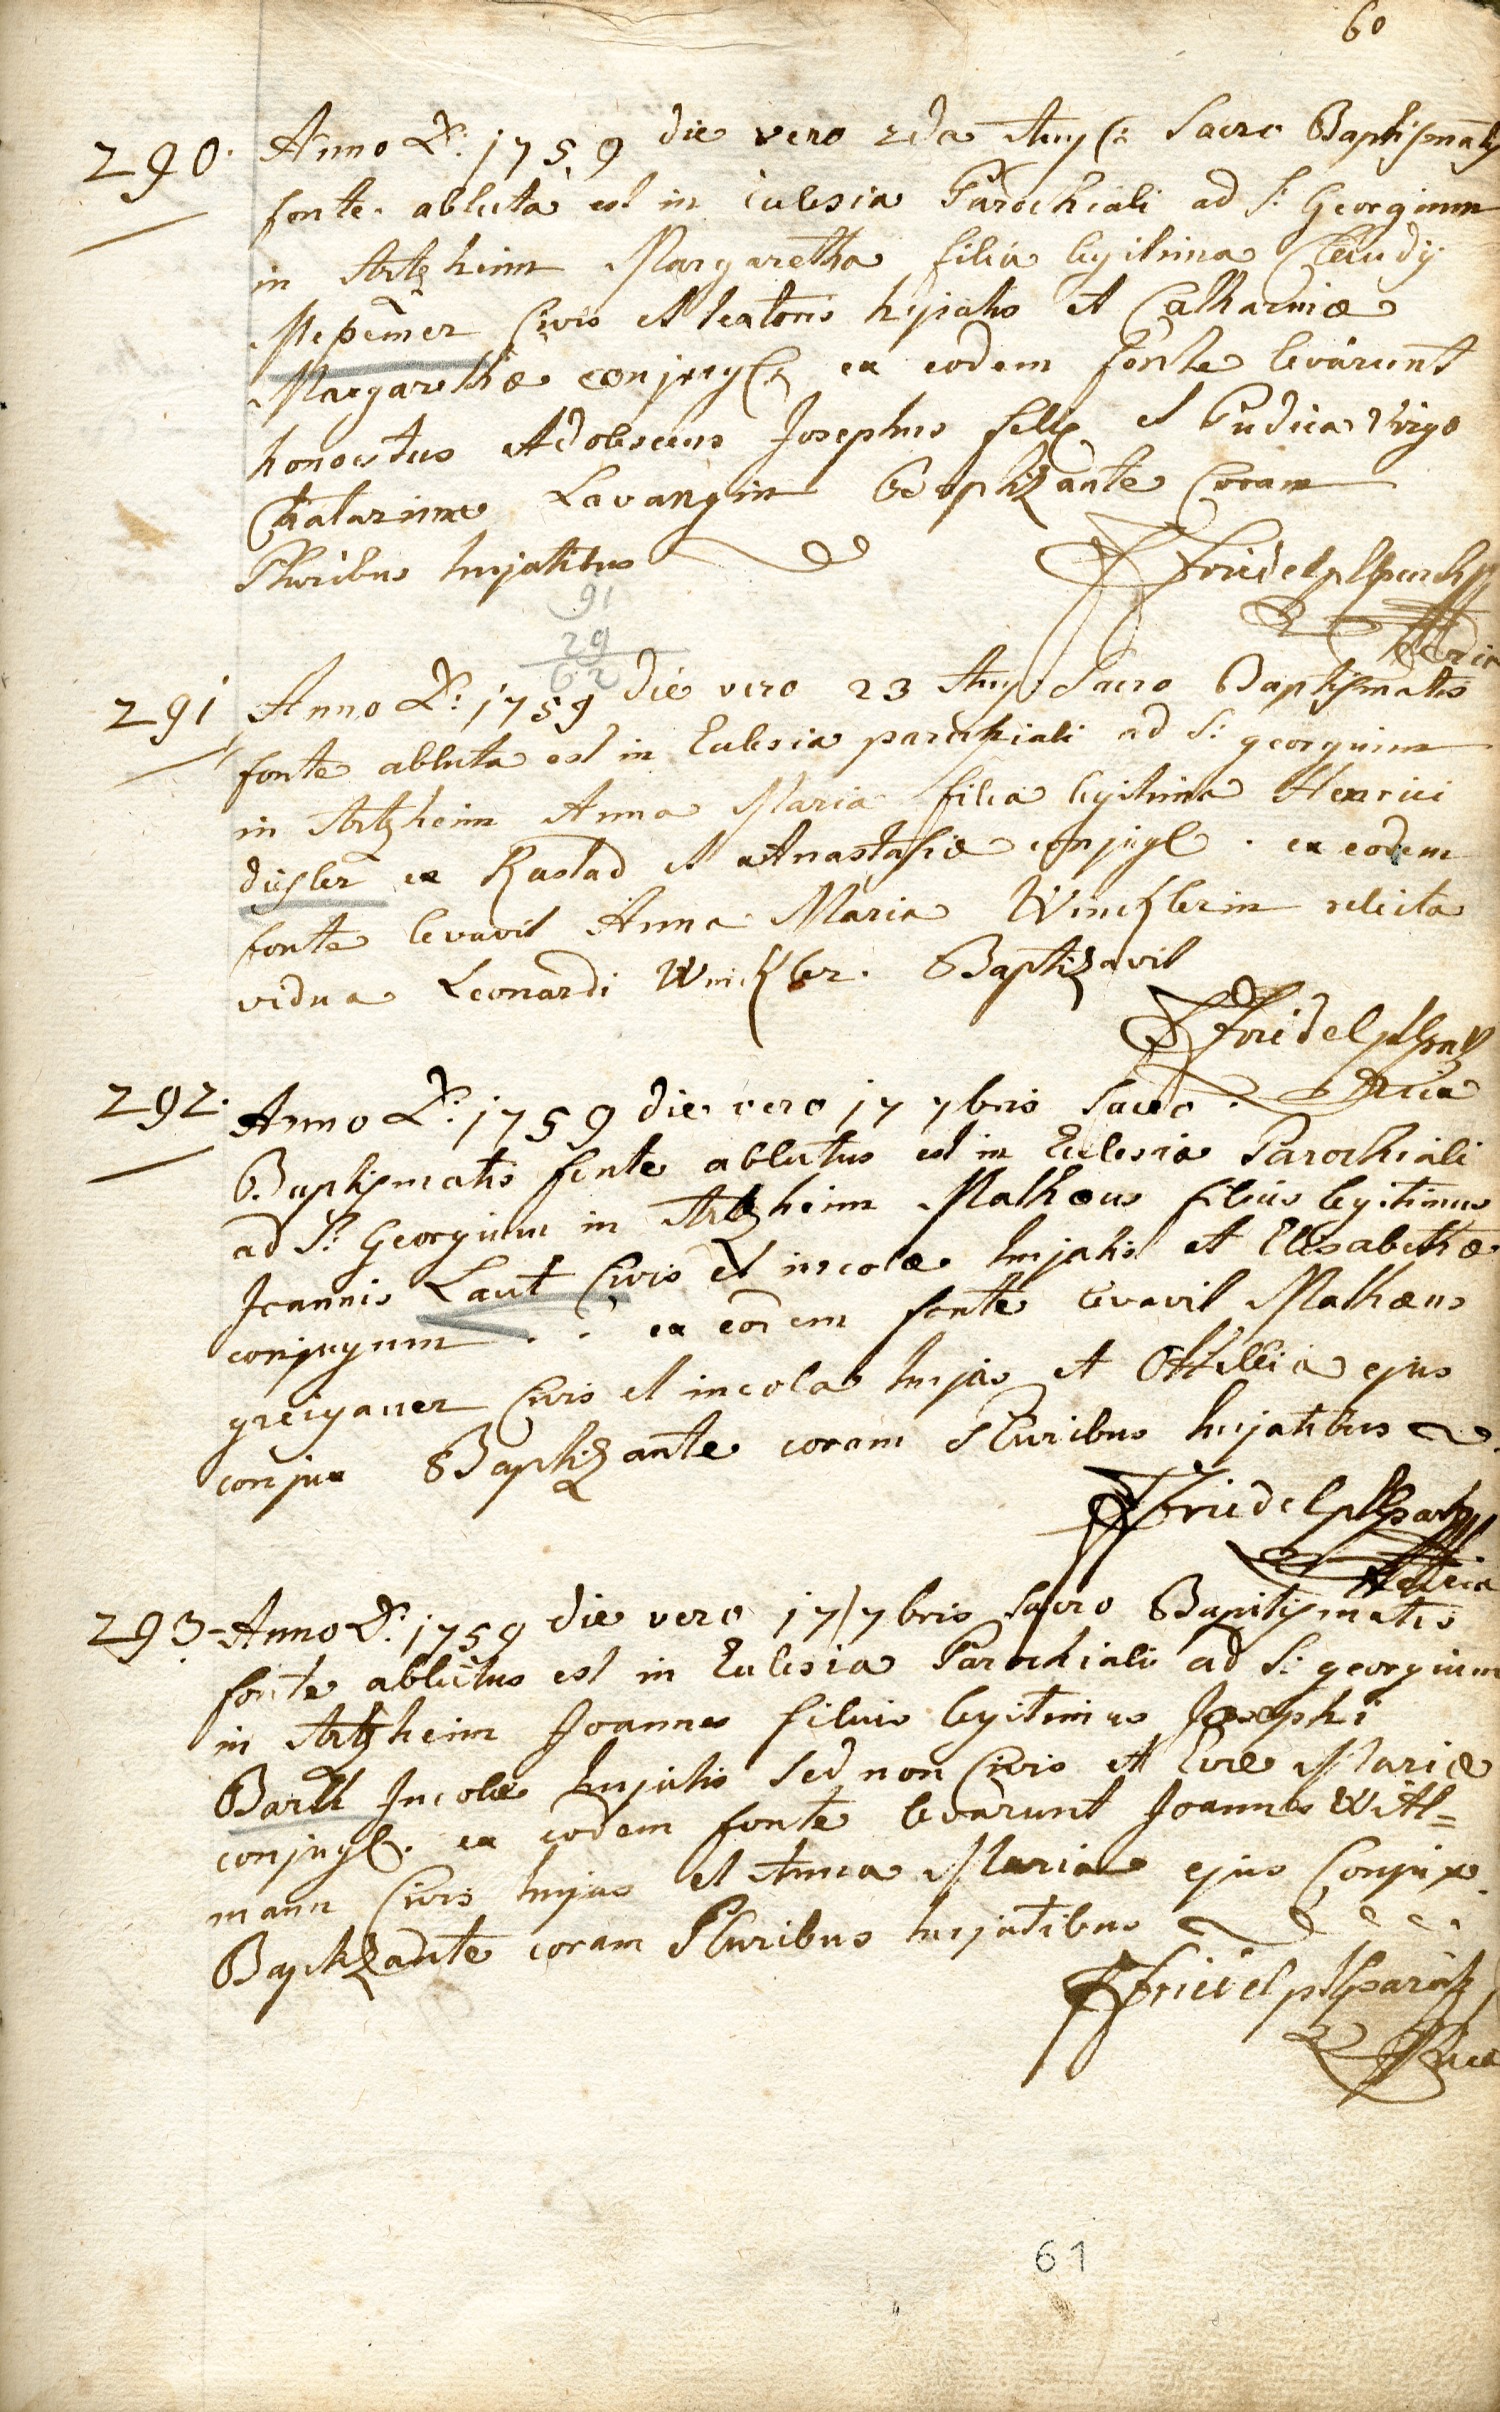 60
290. Anno D: 1759 die vero 2da Aug: Sacro Baptismatis
fonte abluta est in Eclesia Parochiali ad S: Georgium
in Artzheim Margaretha filia legitima Claudij
Civis et textoris hujatis et Catharinæ
Margarethæ conjug: ex eodem fonte levarunt
honestus Adolescens Josephus felix et Pudica Virgo
Catarina Lavangin Baptizante Coram
Pluribus hujatibus
Friedel
91
29
62
291 Anno D: 1759 die vero 23 Aug: Sacro Baptismatis
fonte abluta est in Eclesia parochiali ad S: georgium
in Artzheim Anna Maria filia legitima Henrici
disler ex Rastad et Anastasiæ conjug: ex eodem
fonte levavit Anna Maria Wincklerin relicta
vidua Leonardi Winckler. Baptizavit
Fridel
292. Anno D: 1759 die vero 17 7bris Sacro
Baptismatis fonte ablutus est in Eclesia Parochiali
ad S: Georgium in Artzheim Mathæus filius legitimus
Joannis Laut Civis et incolæ hujatis et Elisabethæ
conjugum . . ex eodem fonte levavit Mathæus
greigauer Civis et incola hujas et Ottillia ejus
conjux Baptizante coram Pluribus hujatibus
Friedel
293. Anno D: 1759 die vero 17 7bris Sacro Baptismatis
fonte ablutus est in Eclesia Parochiali ad S: georgium
in Artzheim Joannes filius legitimus Josephi
Bartl Incolæ hujatis sed non Civis et Evæ Mariæ
conjug: ex eodem fonte levarunt Joannes Witt=
mann Civis hujas et Anna Maria ejus Conjux.
Baptizante coram Pluribus hujatibus
Friedel
61